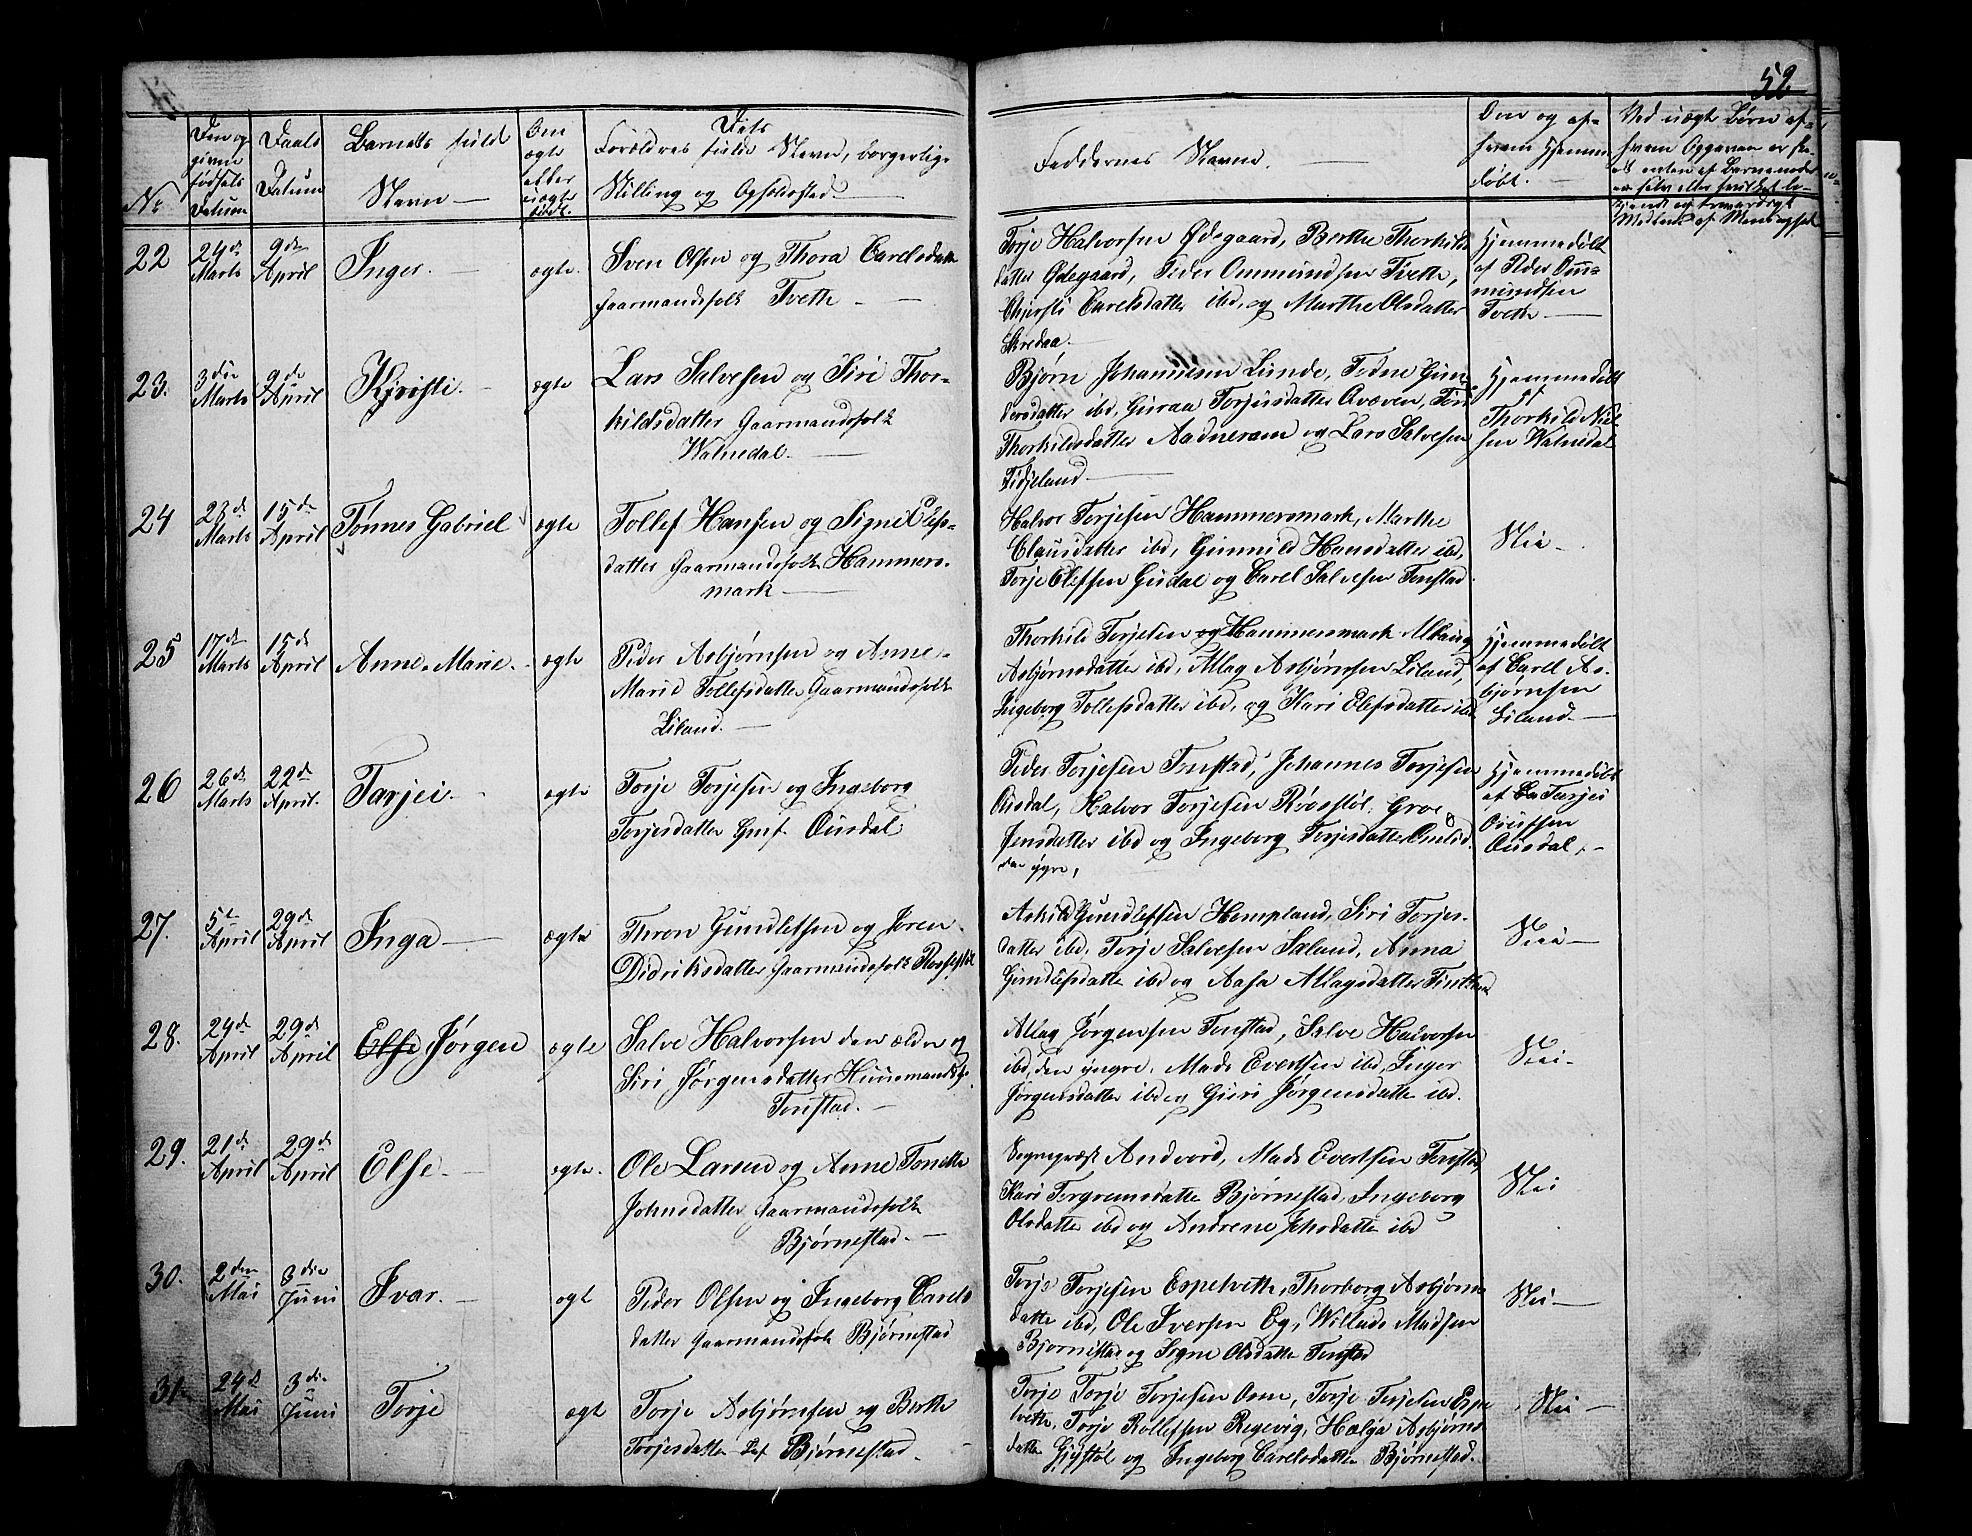 52
No
Den og givne fødsels Datum
Daabs Datum
Barnets fulde Navn
Om ægte eller uægte født.
Dets Forældres fulde Navn, borgerlige Stilling og Opholdsted.
Faddernes Navne.
Om og af hvem hjemmedøbt.
Ved uægte Børn af hvem Opgaven er
22
24de Marts
9de April
Inger.
ægte.
Sven Olsen og Thora Carelsdatter
Gaarmandsfolk Tveth
Torje Halvorsen Ødegaard, Berthe Thorkilds
datter Ødegaard, Peder Ommundsen Tveth,
Chjersti Carelsdatter ibd, og Marthe Olsdatter
Skredaa.
Hjemmedøbt
af Peder Om-
mundsen
Tveth
23.
3die Marts
9de April
Kjristi.
ægte
Lars Salvesen og Siri Thor-
kildsdatter Gaarmandsfolk
Walnedal.
Bjørn Johannesen Lunde, Tedne Gun-
dersdatter ibd, Guraa Torjusdatter Qvæven, Siri
Thorkildsdatter Aadneram og Lars Salvesen
Fidjeland
Hjemmedøbt
af
Thorkild Niel-
sen Walnedal
24
23de Marts
15de April
Tønnes Gabriel
ægte
Tollef Hansen og Signe Elefs-
datter Gaarmandsfolk Hammers-
mark
Halvor Torjesen Hammersmark, Marthe
Clausdatter ibd, Gunnild Hansdatter ibd,
Torje Elefsen Gusdal og Carel Salvesen Tonstad.
Nei
25
17de Marts
15de April
Anne Marie.
ægte
Peder Asbjørnsen og Anne
Marie Tollefsdatter Gaarmandsfolk
Liland.
Thorkild Torjesen og Hammersmark
Asbjørnsdatter ibd, Atlag Asbjørnsen Liland,
Ingeborg Tollefsdatter ibd, og Kari Elefsdatter ibd
Hjemmedøbt
af Carel As-
bjørnsen
Liland.
26
26de Marts
22de April.
Tarjei.
ægte
Torje Torjesen og Ingeborg
Torjesdatter Gmf. Ousdal.
Peder Torjesen Tonstad, Johannes Torjesen
Ousdal, Halvor Torjesen Røosstøl. Groe
Jensdatter ibd og Ingeborg Torjesdatter Ousdal
den yngre,
Hjemmedøbt
af Tarjei
Ousdal,
27.
5te April
29de April
Inga
ægte
Thron Gundlefsen og Joren
Didriksdatter Gaarmandsfolk Røosstøl
Askild Gundlefsen Hompland, Siri Torjes-
datter ibd, Torje Salvesen Saland, Anna
Gundlefsdatter ibd og Aasa Atlagsdatter
Nei
28.
24de April
29de April
Else Jørgen
ægte
Salve Halvorsen den ældre og
Siri Jørgensdatter Huusmandsf.
Tonstad.
Atlag Jørgensen Tonstad, Salve Halvorsen
ibd, den yngre, Mads Evertsen ibd, Inger
Jørgensdatter ibd og Guri Jørgensdatter ibd.
Nei
29.
21de April
29de April
Else.
ægte.
Ole Larsen og Anne Tonette
Johnsdatter Gaarmandsfolk
Bjørnestad.
Sognepræst Andvord, Mads Evertsen Tonstad,
Kari Torgrimsdatter Bjørnestad, Ingeborg
Olsdatter ibd og Andrene Johsdatter ibd
Nei
30.
2den Mai
3die Juni
Ivar.
ægte
Peder Olsen og Ingeborg Carels
datter Gaarmandsfolk Bjørnestad
Torje Torjesen Espetvette, Thorborg Asbjørns
datter ibd, Ole Iversen Eg, Willads Madsen
Bjørnestad og Signe Olsdatter Tonstad
Nei
31
24de Mai
3die Juni
Torje
ægte
Torje Asbjørnsen og Berthe
Torjesdatter Bjørnestad.
Torje Torje Torjesen Osen, Torje Torjesen Espe
tvette, Torje Rollefsen Regevig, Helga Asbjørns
datter Gjystøl og Ingeborg Carelsdatter Bjørnestad.
Nei